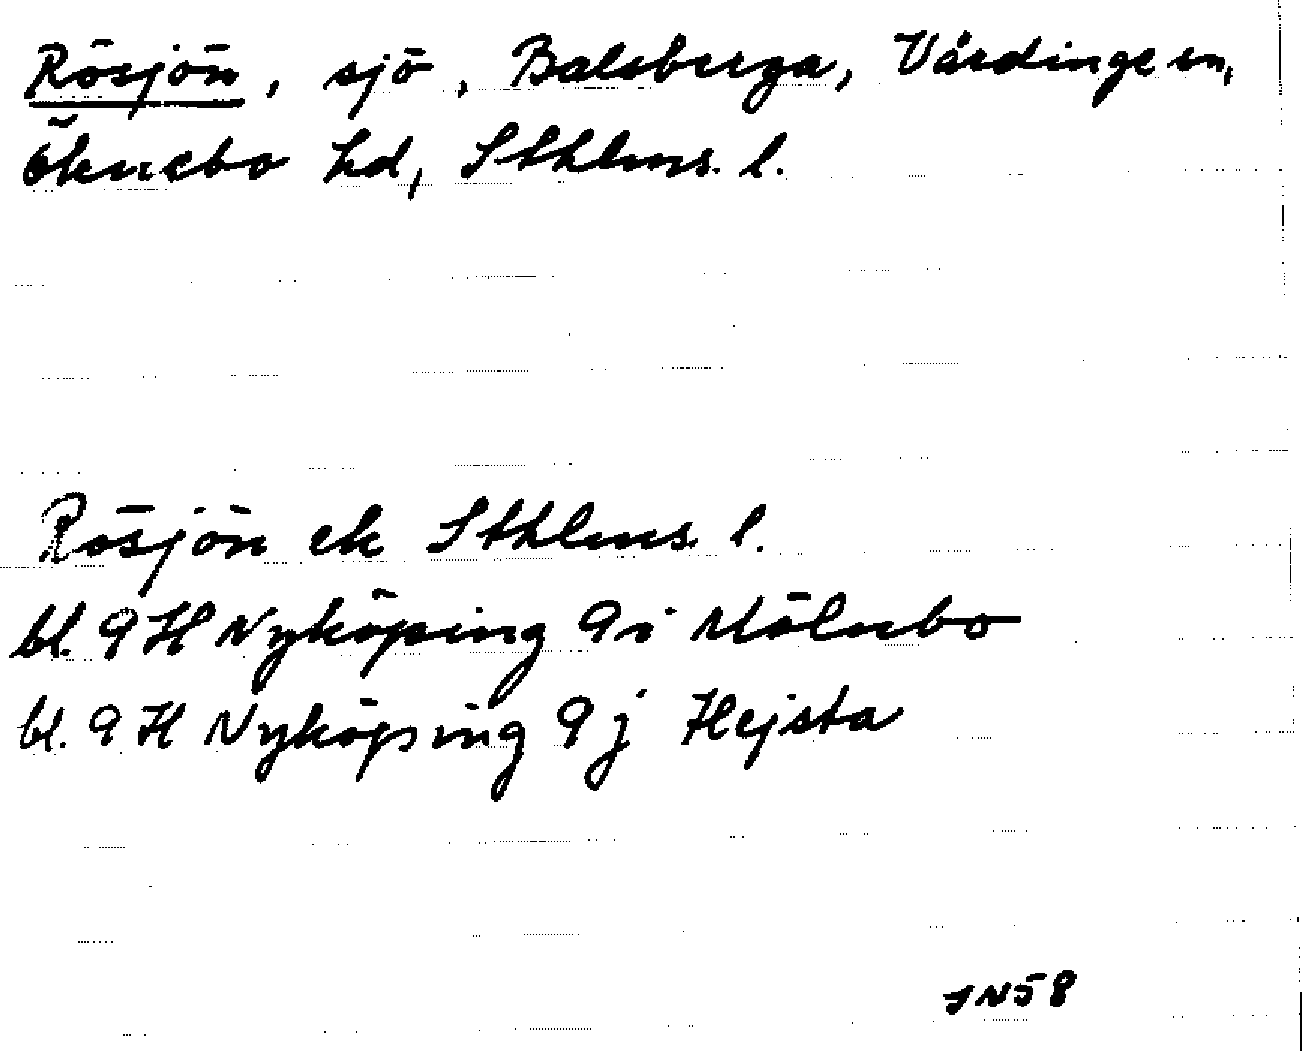 Rösjön, sjö, Balsberga, Vårdinge sn,
Öknebo hd, Sthlms. l.
Rösjön ek Sthlms. l.
bl. 9 H Nyköping 9 i Mölnbo
bl. 9 H Nyköping 9 j Hejsta
JN58